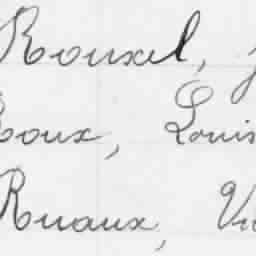 Rouxel, J
Roux, Louis
Ruaux, Vic